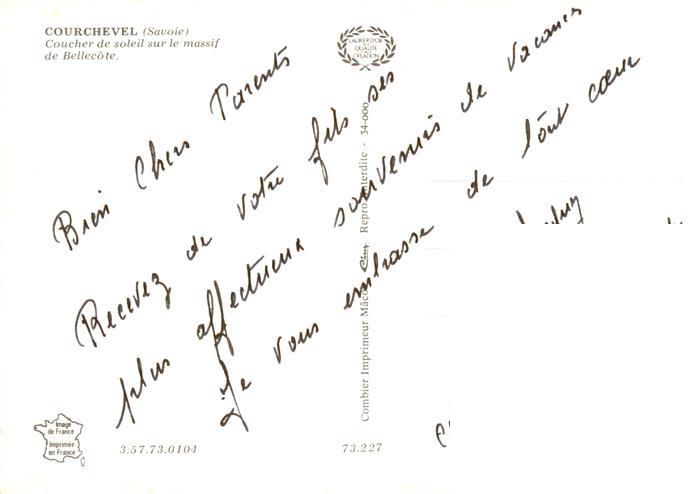 COURCHEVEL (Savoie)
Coucher de soleil sur le massif
de Bellecôte.
LAURIER D'OR
DE LA
QUALITÉ
CRÉATION
Bien Chers Parents
Recevez de votre fils ses
plus affectueux souvenirs de vacances
Je vous embrasse de tout cœur
Combier Imprimeur Mâcon Cim Repro interdite - 34-000
Image
de France
Imprimée
en France
3.57.73.0104
73.227